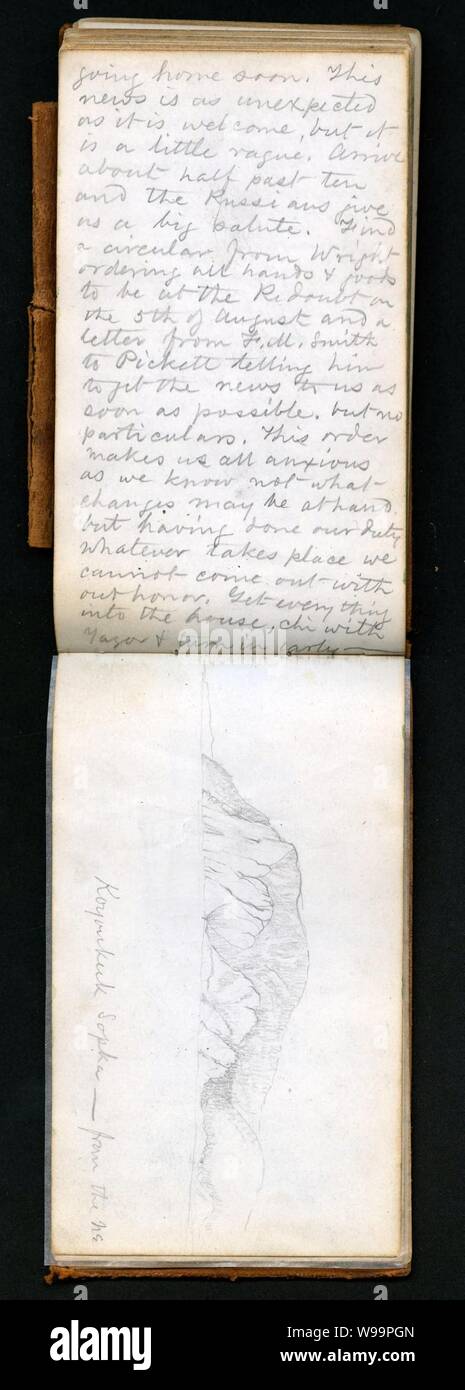 going home soon. This
news is as unexpected
as it is welcome, but it
is a little vague. Arrive
about half past ten
and the Russians give
us a big salute. Find
a circular from Wright
ordering all hands & goods
to be at the Redoubt on
the 5th of August and a
letter from F. M. Smith
to Pickett telling him
to get the news to us as
soon as possible. but no
particulars. This order
makes us all anxious
as we know not what
changes may be at hand.
but having done our duty
whatever takes place we
cannot come out with
out honor. Get everything
into the house, chi with
Yagor & turn in early —
Koyoukuk Sopka — from the NE
alamy
Image ID: W99PGN
www.alamy.com